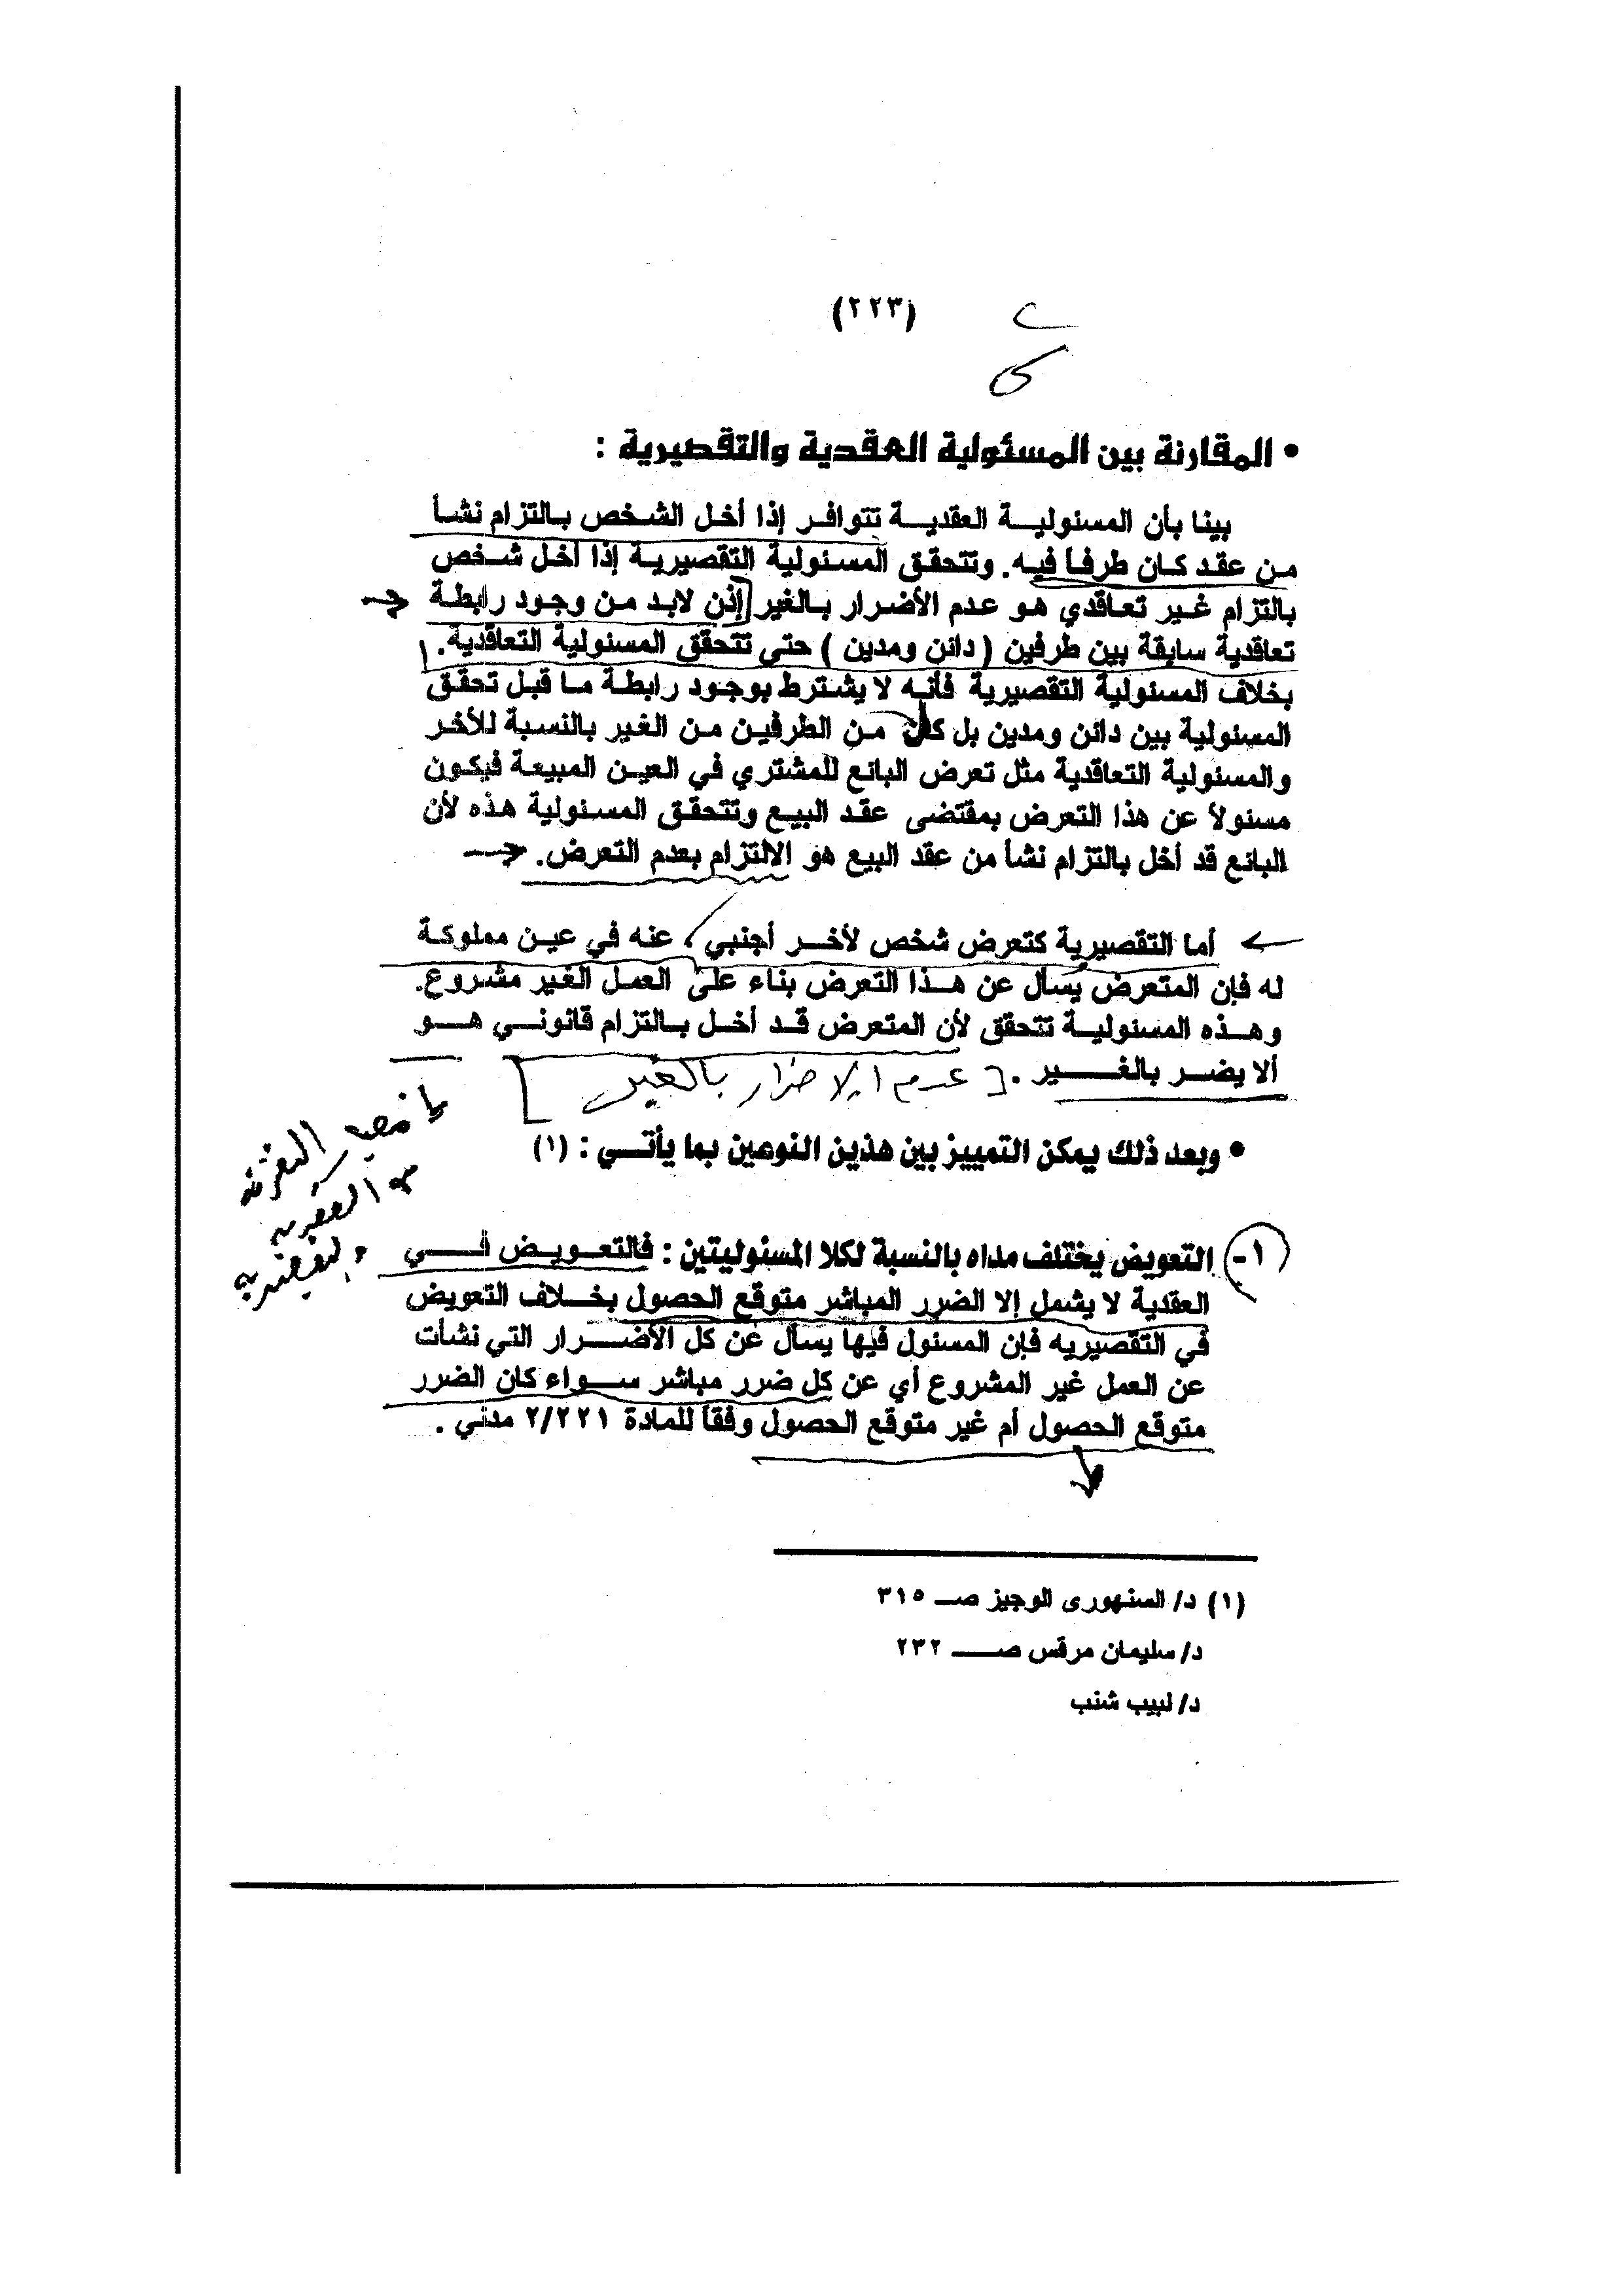 (٢٢٣)
• المقارنة بين المسئولية العقدية والتقصيرية :
بينا بأن المسئولية العقدية تتوافر إذا أخل الشخص بالتزام نشأ
من عقد كان طرفاً فيه. وتتحقق المسئولية التقصيرية إذا أخل شخص
بالتزام غير تعاقدي هو عدم الأضرار بالغير إذن لابد من وجود رابطة
تعاقدية سابقة بين طرفين ( دائن ومدين ) حتى تتحقق المسئولية التعاقدية.
بخلاف المسئولية التقصيرية فأنه لا يشترط بوجود رابطة ما قبل تحقق
المسئولية بين دائن ومدين بل كان من الطرفين من الغير بالنسبة للأخر
والمسئولية التعاقدية مثل تعرض البائع للمشتري في العين المبيعة فيكون
مسئولاً عن هذا التعرض بمقتضى عقد البيع وتتحقق المسئولية هذه لأن
البائع قد أخل بالتزام نشأ من عقد البيع هو الالتزام بعدم التعرض.
أما التقصيرية كتعرض شخص لأخر أجنبي ، عنه في عين مملوكة
له فإن المتعرض يسأل عن هذا التعرض بناء على العمل الغير مشروع.
وهذه المسئولية تتحقق لأن المتعرض قد أخل بالتزام قانوني هو
ألا يضر بالغير . [ عدم الاضرار بالغير ]
• وبعد ذلك يمكن التمييز بين هذين النوعين بما يأتي : (١)
التفرقة
العقدية
والتقصيرية
١- التعويض يختلف مداه بالنسبة لكلا المسئوليتين : فالتعويض في
العقدية لا يشمل إلا الضرر المباشر متوقع الحصول بخلاف التعويض
في التقصيريه فإن المسئول فيها يسأل عن كل الأضرار التي نشأت
عن العمل غير المشروع أي عن كل ضرر مباشر سواء كان الضرر
متوقع الحصول أم غير متوقع الحصول وفقاً للمادة ٢/٢٢١ مدني .
(١) د/ السنهورى الوجيز صـ ٣١٥
د/ سليمان مرقس صـ ٢٣٢
د/ لبيب شنب